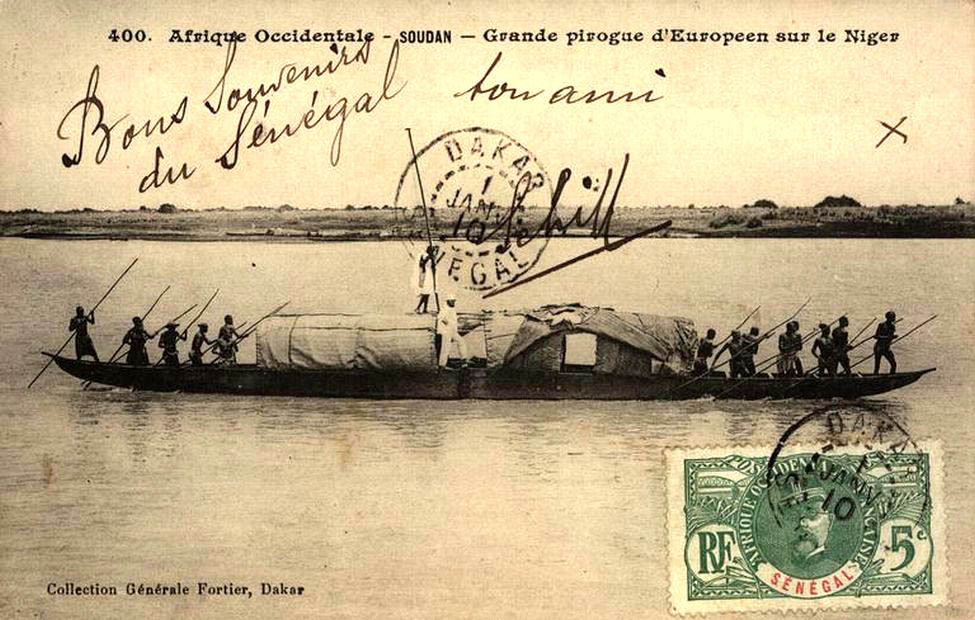 400. Afrique Occidentale - SOUDAN — Grande pirogue d'Europeen sur le Niger
Bons Souvenirs
du Sénégal
ton ami
X
DAKAR
1
JANV
10
SÉNÉGAL
Schill
DAKAR
1
JANV
10
POSTES
AFRIQUE OCCIDENTALE FRANÇAISE
RF
5c
SÉNÉGAL
Collection Générale Fortier, Dakar